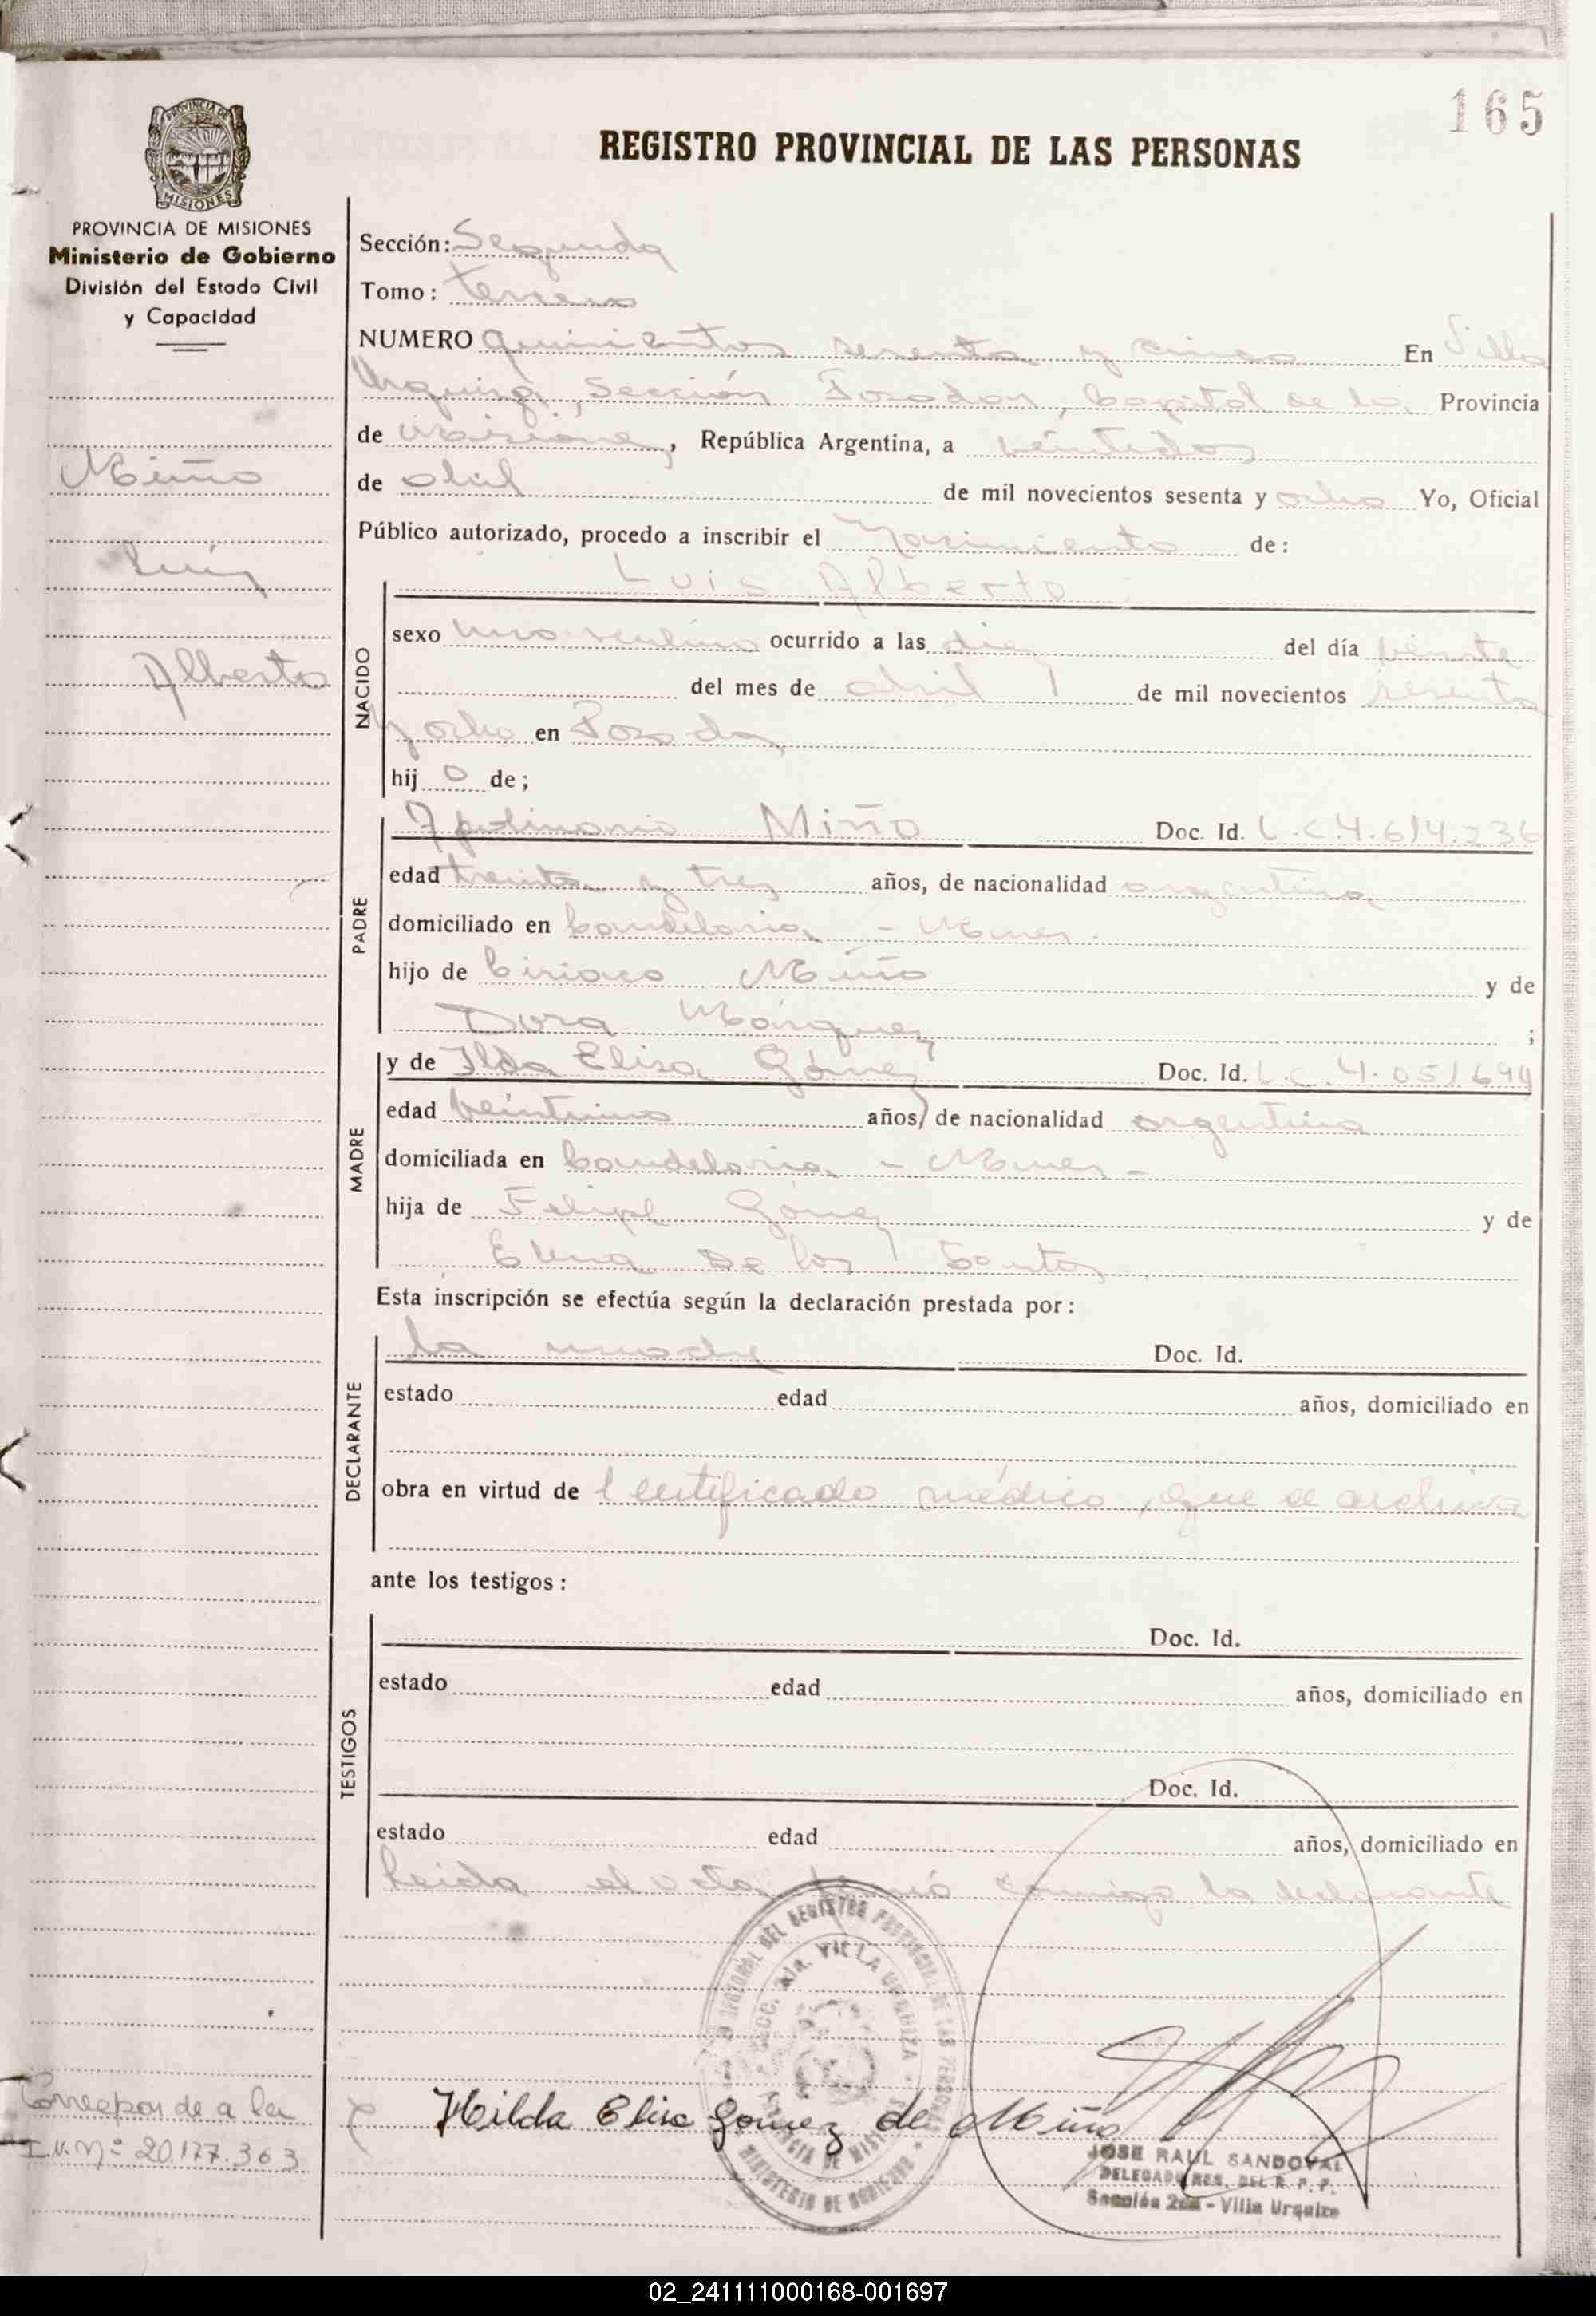 165
REGISTRO PROVINCIAL DE LAS PERSONAS
PROVINCIA DE MISIONES
PROVINCIA DE MISIONES
Ministerio de Gobierno
División del Estado Civil
y Capacidad
Miño
Luis
Alberto
Sección: Segunda
Tomo: tercero
NUMERO quinientos sesenta y cinco En Villa
Urquiza, Sección Posadas, Capital de la Provincia
de Misiones, República Argentina, a veintidos
de abril de mil novecientos sesenta y ocho Yo, Oficial
Público autorizado, procedo a inscribir el Nacimiento de:
Luis Alberto
NACIDO
sexo masculino ocurrido a las diez del día veinte
del mes de abril de mil novecientos sesenta
y ocho en Posadas
hij o de;
PADRE
Apolinario Miño Doc. Id. L.E.4.614.236
edad treinta y tres años, de nacionalidad argentina
domiciliado en Candelaria - Mnes.
hijo de Ciriaco Miño y de
Dora Márquez ;
MADRE
y de Ilda Elisa Gómez Doc. Id. L.C. 4.051694
edad años, de nacionalidad argentina
domiciliada en Candelaria - Mnes -
hija de Felipe Gómez y de
Elena De los Santos
Esta inscripción se efectúa según la declaración prestada por:
DECLARANTE
la madre Doc. Id.
estado edad años, domiciliado en
obra en virtud de certificado médico, que se archiva
ante los testigos:
TESTIGOS
Doc. Id.
estado edad años, domiciliado en
Doc. Id.
estado edad años, domiciliado en
Leida el acta, firmó conmigo la declarante
REGIONAL DEL REGISTRO PROVINCIAL DE LAS PERSONAS
SECC. 2da. VILLA URQUIZA
PROVINCIA DE MISIONES
MINISTERIO DE GOBIERNO
Hilda Elisa Gomez de Miño
JOSE RAUL SANDOVAL
DELEGADO REG. DEL R. P. P.
Sección 2da - Villa Urquiza
Corresponde a la
I.N.Nº 20.177.363
02_241111000168-001697